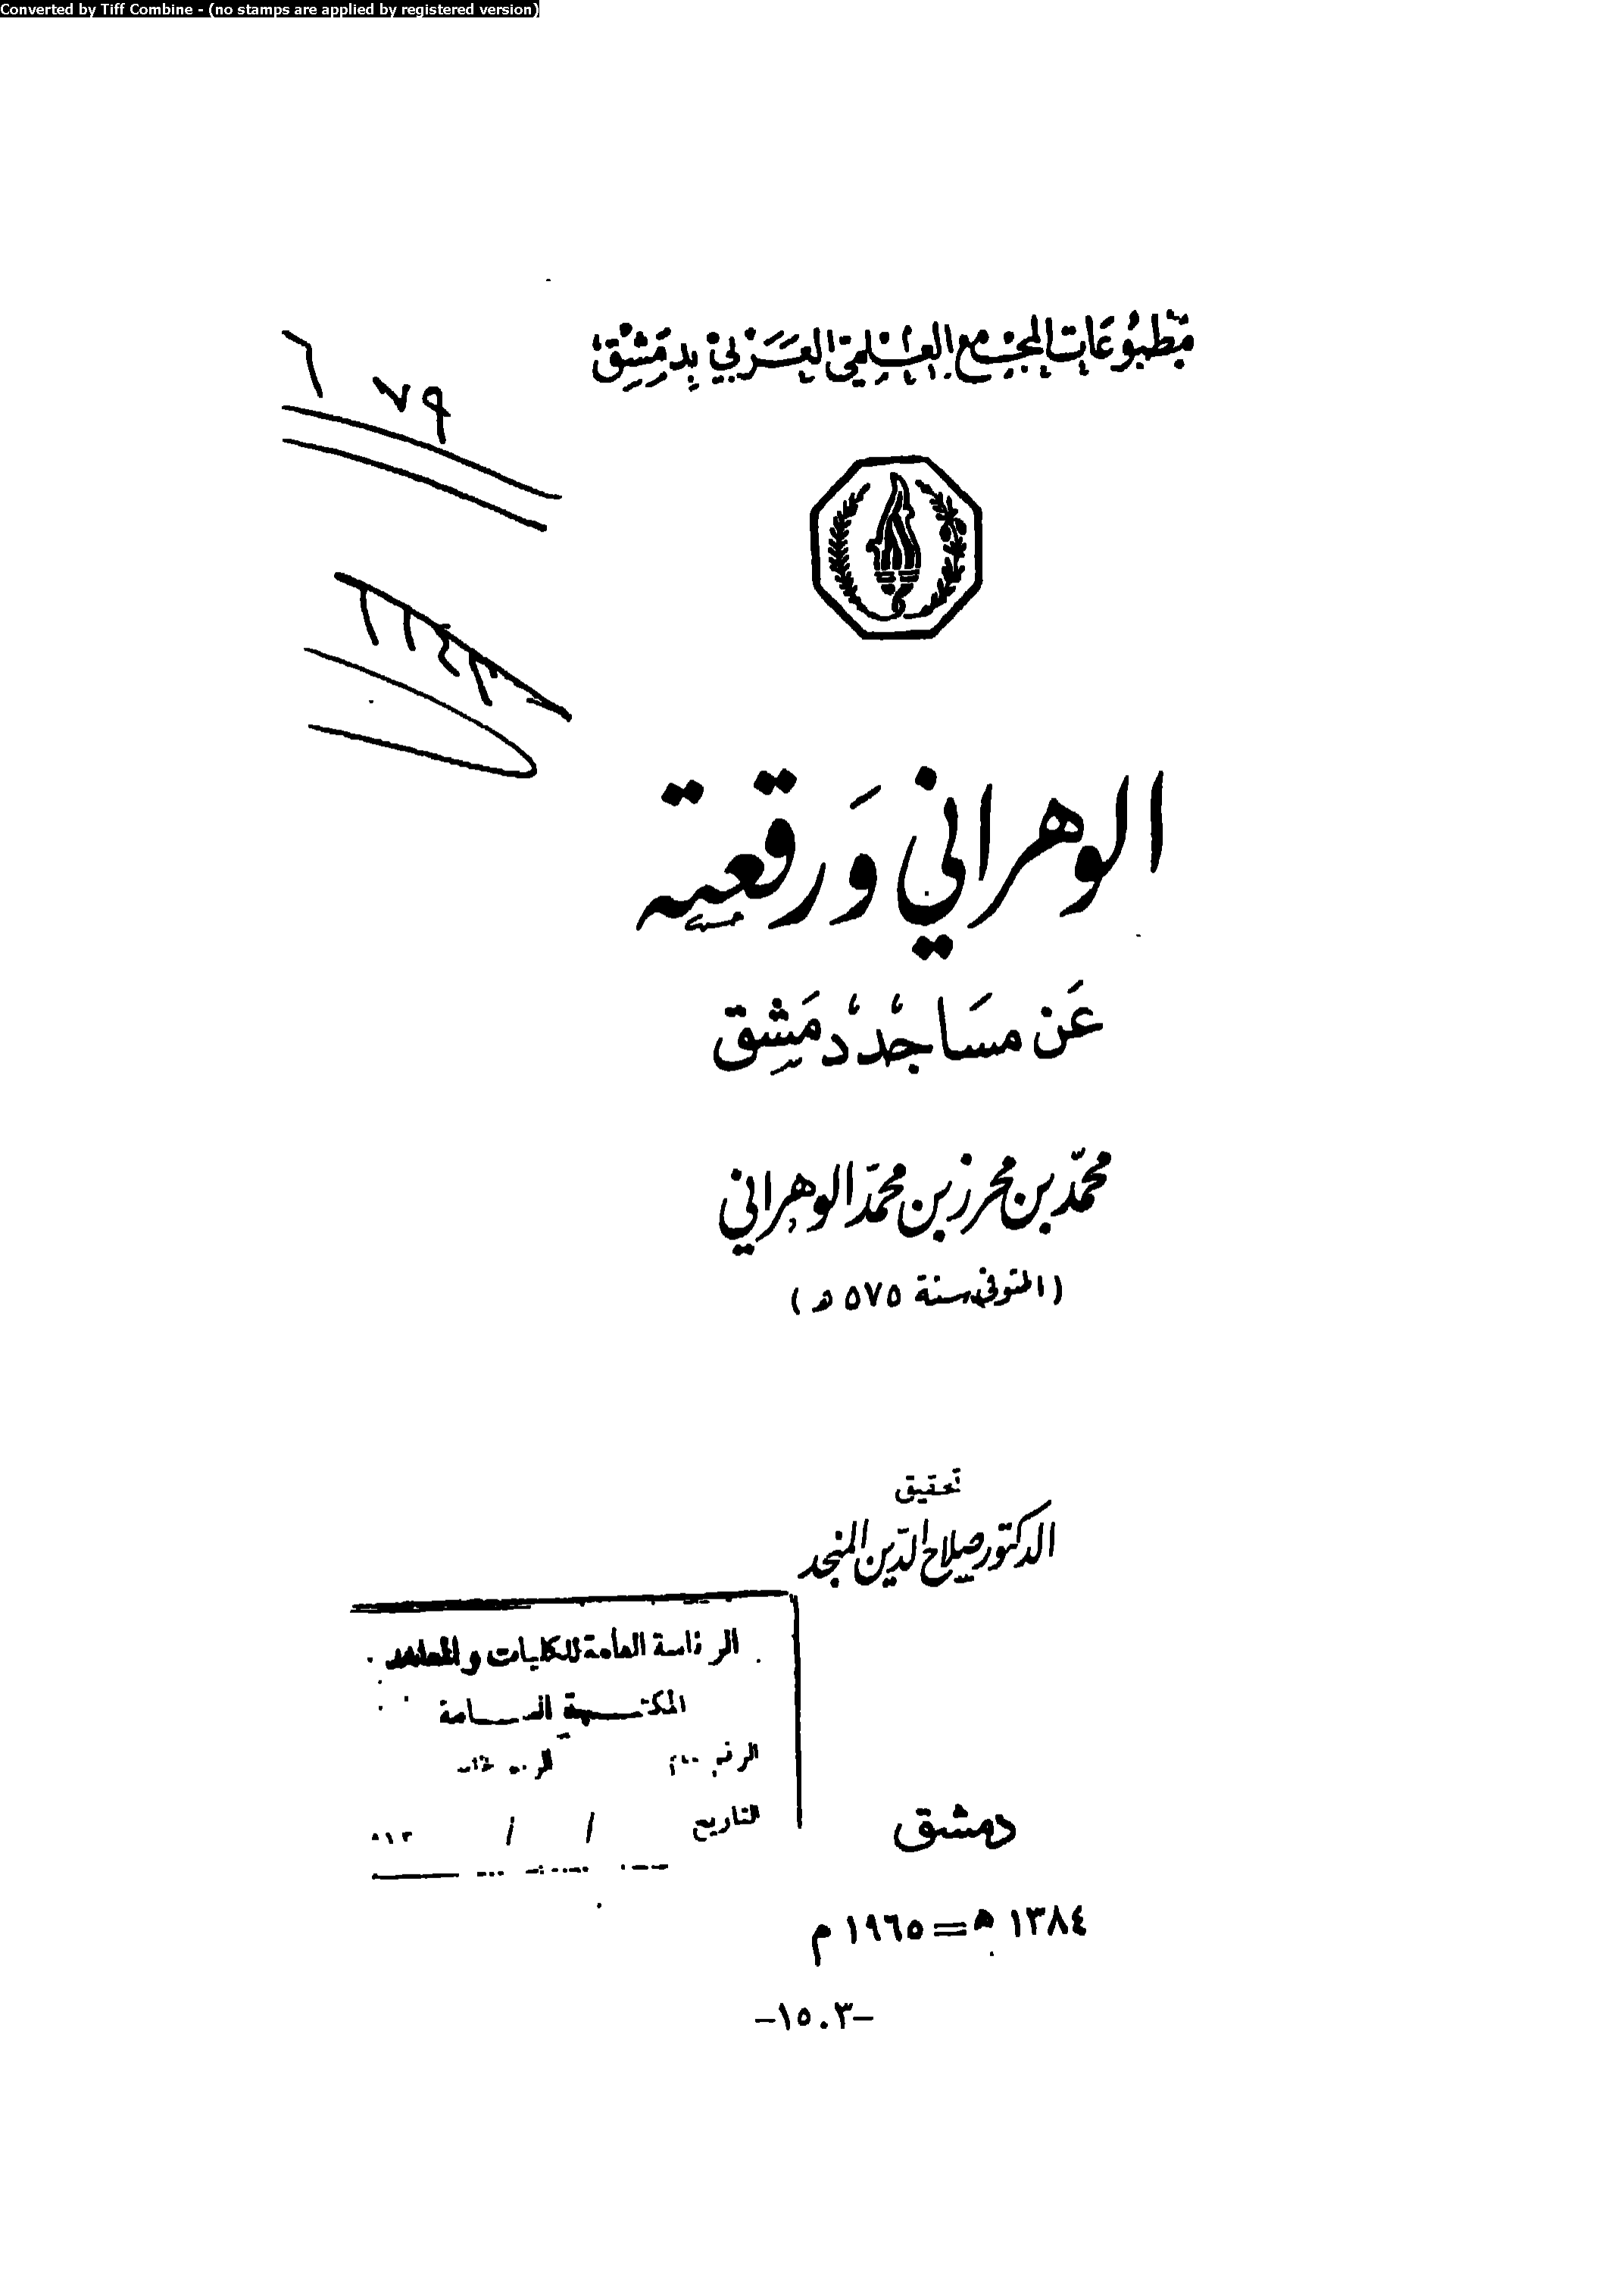 Converted by Tiff Combine - (no stamps are applied by registered version)
مَطبُوعَات المجْمع العِلمي العَرَبي بِدمَشِق
٦ ٧٩
الوهراني وَرقعته
عَن مسَاجد دمَشِق
محمّد بن محرز بن محمّد الوهراني
(المتوفى سنة ٥٧٥ هـ)
تحقيق
الدكتور صلاح الدّين المنجد
الرئاسة العامة للكليات والمعاهد
المكتبة العامة
الرقم العام
التاريخ / / ١٣هـ
دمشق
١٣٨٤ هـ = ١٩٦٥ م
-١٥٠٣-